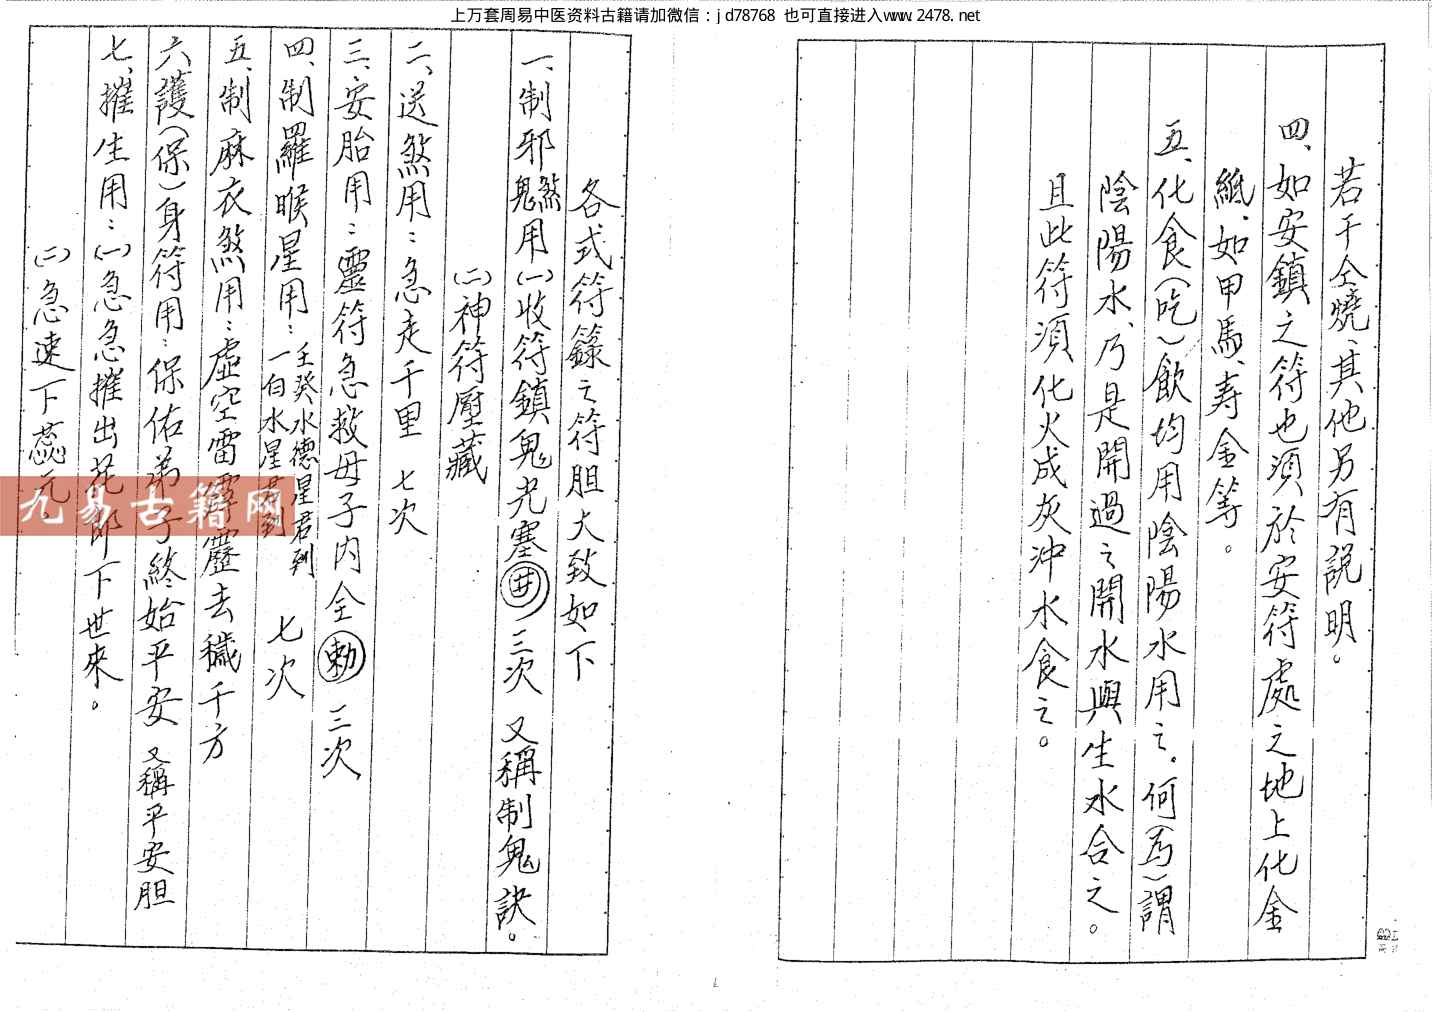 上万套周易中医资料古籍请加微信：jd78768 也可直接进入www.2478.net
若干全燒、其他另有説明。
四、如安鎮之符也須於安符處之地上化金
紙、如甲馬、寿金等。
五、化食（吃）飲均用陰陽水用之。何（为）謂
陰陽水、乃是開過之開水與生水合之。
且此符須化火成灰沖水食之。
各式符籙之符胆大致如下
一、制邪鬼煞用(一)收符鎮鬼光塞井 三次 又稱制鬼訣。
(二)神符壓藏
二、送煞用：急走千里 七次
三、安胎用：靈符急救母子内全勅 三次
四、制羅睺星用：壬癸水德星君到 七次
一白水星君到
五、制麻衣煞用：虚空雷霹靂去穢千方
六、護（保）身符用：保佑弟子終始平安 又稱平安胆
七、摧生用：(一)急急摧出花即下世來。
(二)急速下蕊元。
九易古籍网